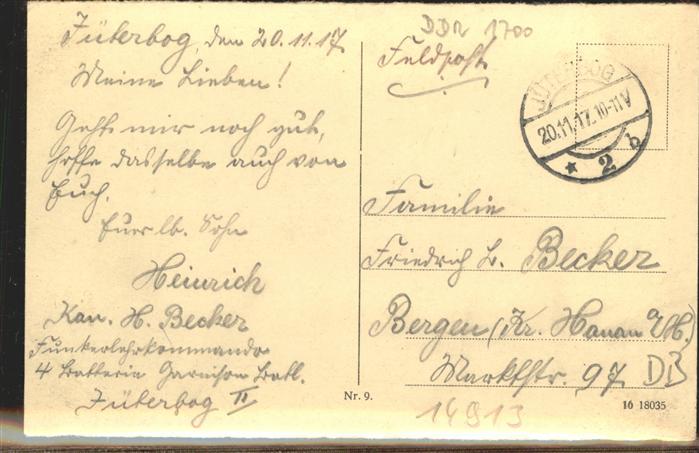 Jüterbog, den 20.11.17
Meine Lieben!
Geht mir noch gut,
hoffe dasselbe auch von
Euch.
Euer lb. Sohn
Heinrich
Kan. H. Becker
Funkerlehrkommando
4 Batterie Garnison Batl.
Jüterbog II
DDR 1700
Feldpost
JÜTERBOG
20.11.17.10-11V
* 2 b
Familie
Friedrich L. Becker
Bergen (Kr. Hanau a/M.)
Marktstr. 97 DB
Nr. 9.
14913
16 18035